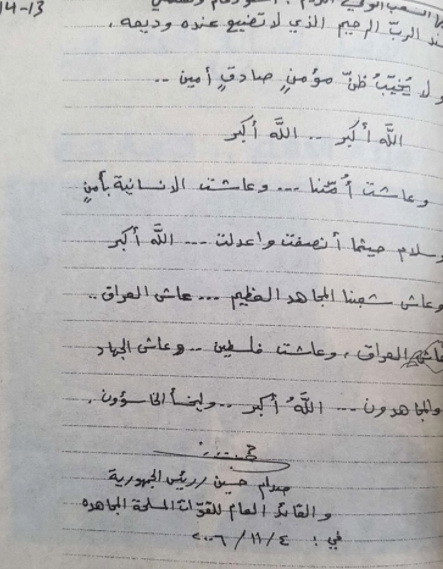 14-13
عند الربّ الرحيم الذي لا تضيع عنده وديعه،
ولا يُخيّبُ ظنّ مؤمنٍ صادقٍ أمين ..
اللَّه أكبر .. اللَّه أكبر
وعاشت أُمّتنا ... وعاشت الانسانية بأمنٍ
وسلام حيثما أنصفت واعدلت ... اللَّه أكبر
وعاش شعبنا المجاهد العظيم ... عاش العراق ..
عاش العراق، وعاشت فلسطين .. وعاش الجهاد
والمجاهدون ... اللَّهُ أكبر .. وليخسأ الخاسؤون .
صدام حسين / رئيس الجمهورية
والقائد العام للقوات المسلحة المجاهده
في : ٤ / ١١ / ٢٠٠٦